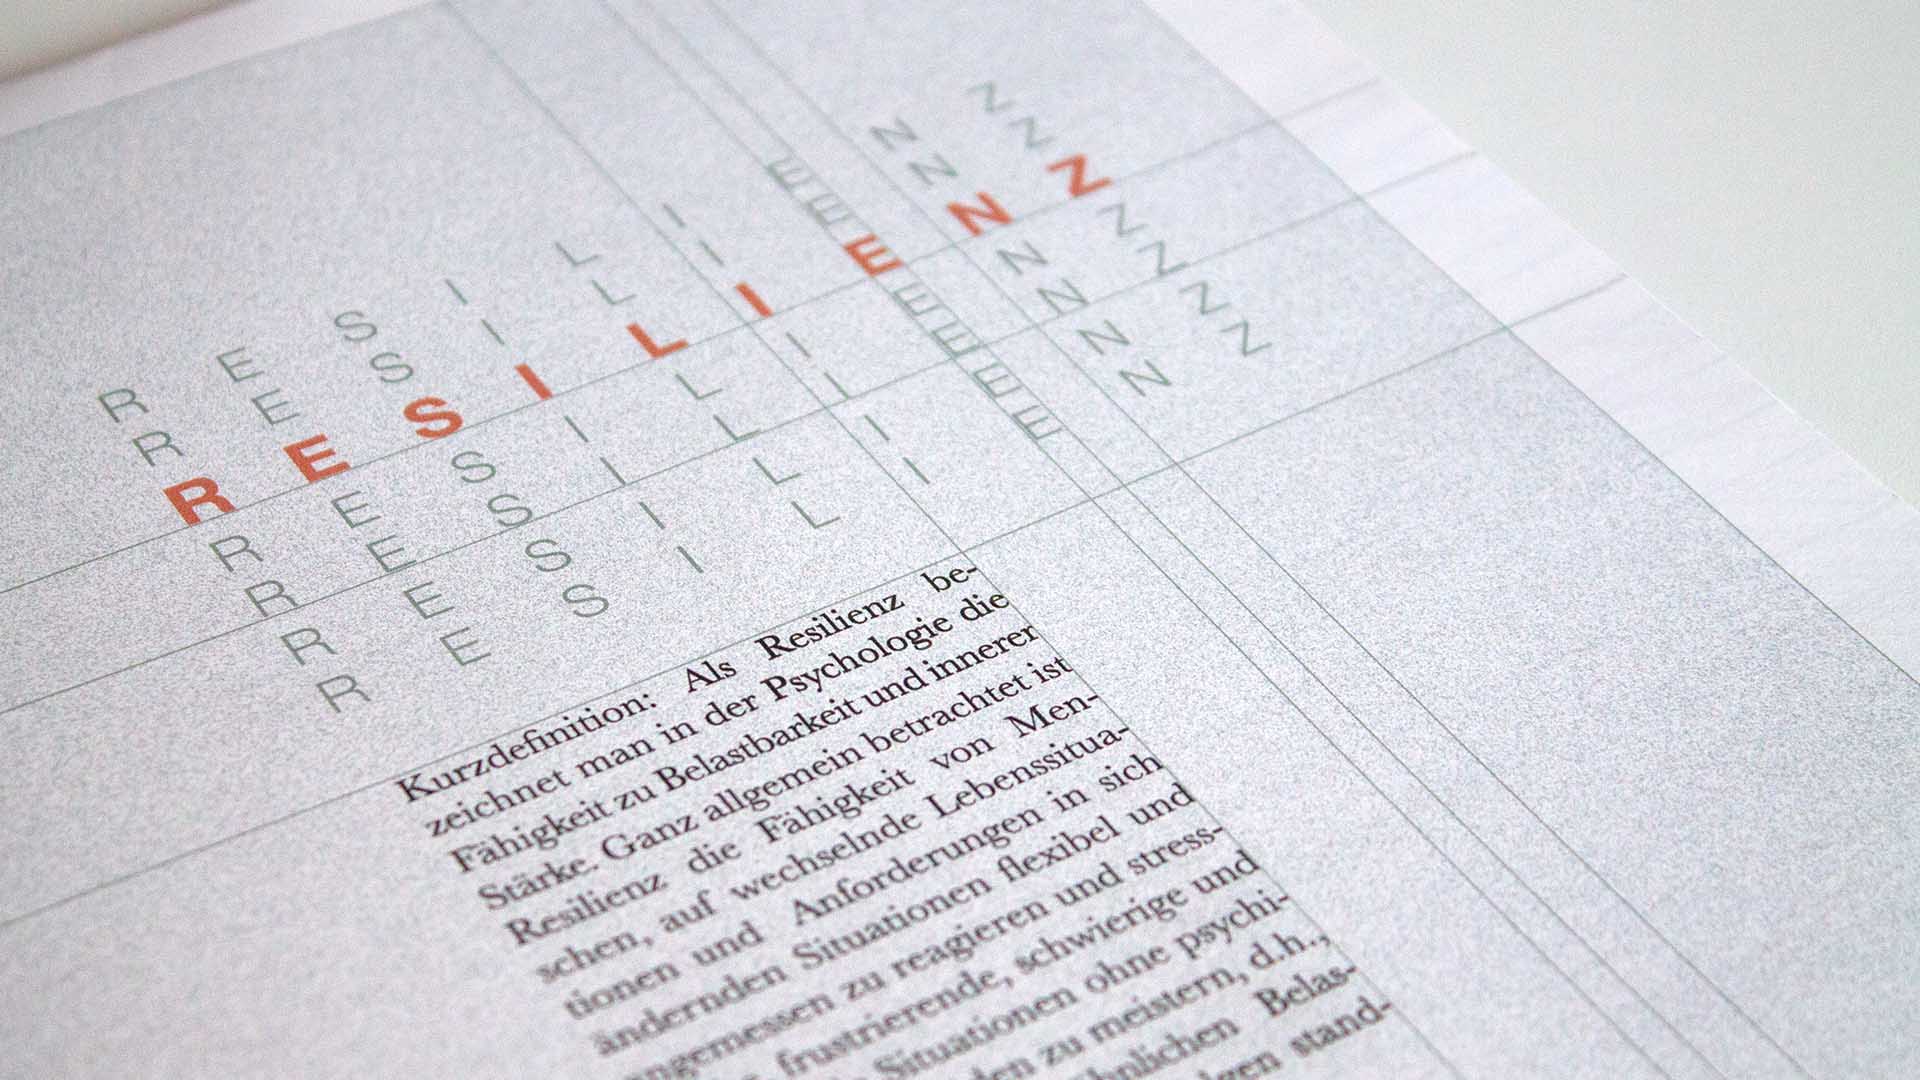 R E S I L I E N Z
R E S I L I E N Z
R E S I L I E N Z
R E S I L I E N Z
R E S I L I E N Z
R E S I L I E N Z
R E S I L I E N Z
Kurzdefinition: Als Resilienz be-
zeichnet man in der Psychologie die
Fähigkeit zu Belastbarkeit und innerer
Stärke. Ganz allgemein betrachtet ist
Resilienz die Fähigkeit von Men-
schen, auf wechselnde Lebenssitua-
tionen und Anforderungen in sich
ändernden Situationen flexibel und
angemessen zu reagieren und stress-
frustrierende, schwierige und
Situationen ohne psychi-
zu meistern, d.h.,
Belas-
stand-